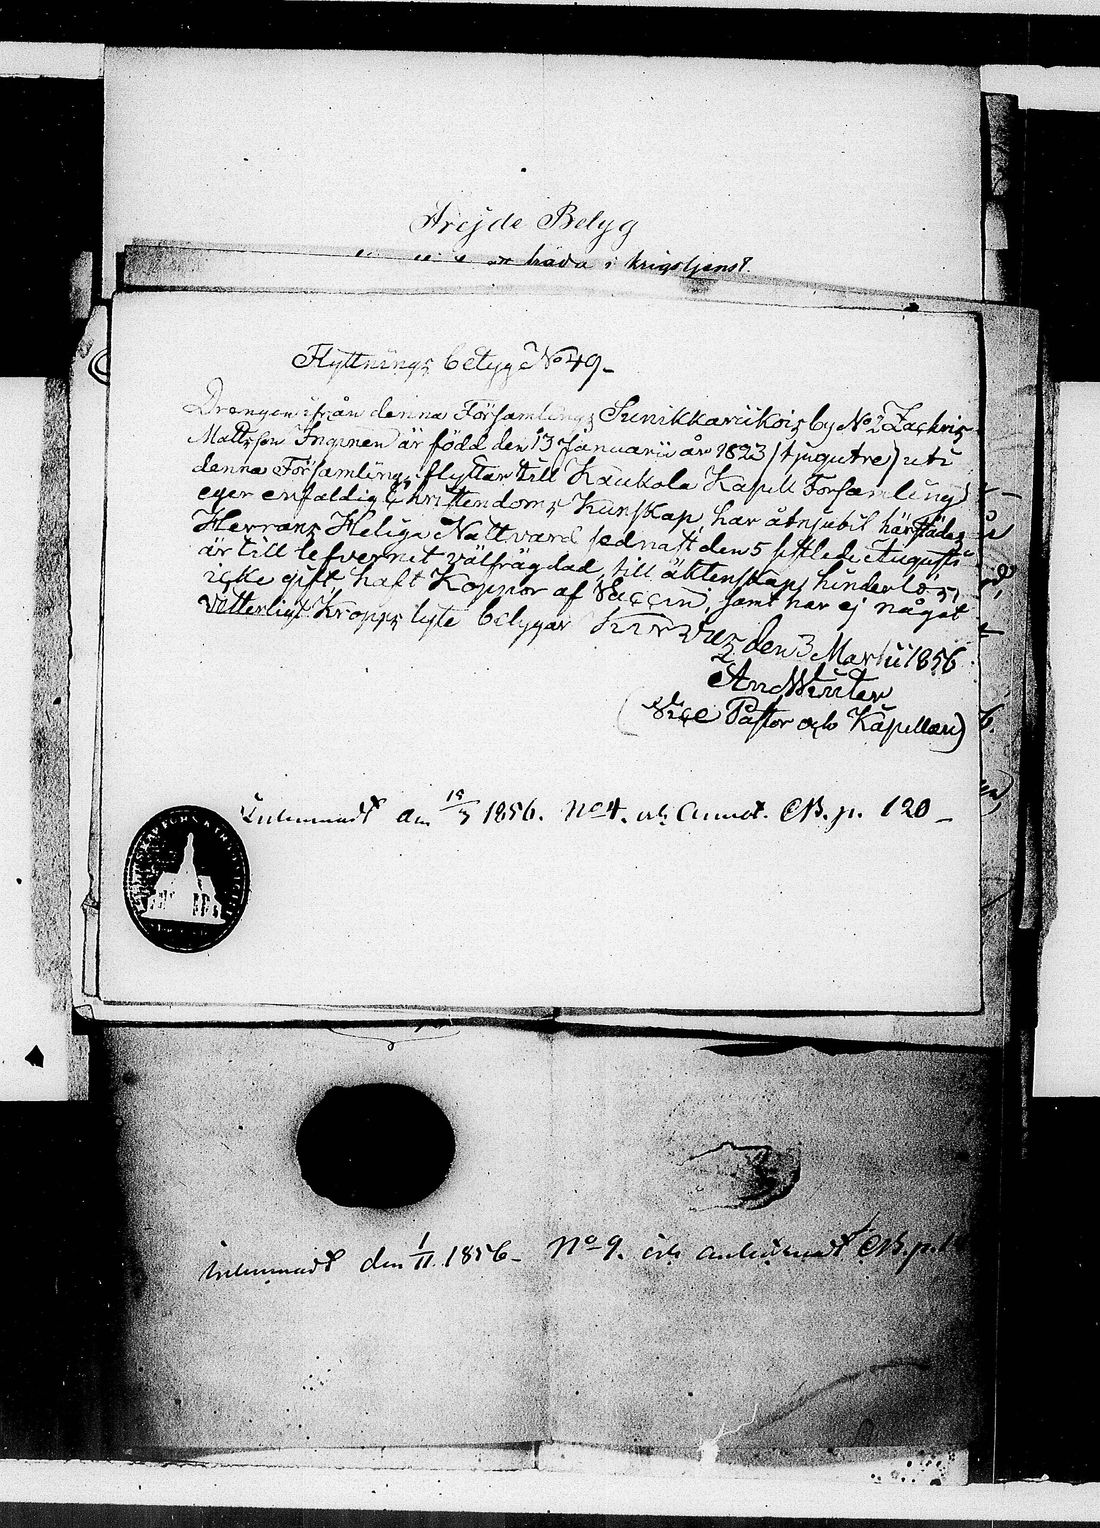 Arejde Betyg
" " " att träda i krigstjenst.
Flyttnings betyg No 49.
Drengen ifrån denna Församlings Sunikkariikois by No 2 Zachris
Mattsson Inginen är född den 13 Januarii år 1823 (tjugutre) uti
denna Församling, flyttar till Kaukola Kapell Församling,
eger enfaldig Christendoms Kunskap, har åtnjutit härstädes
Herrans Heliga Nattvard sednast den 5 sistledit Augusti
är till lefvernet välfrägdad, till äktenskap hinderlös,
icke gift, haft Koppor af Vaccin, samt har ej något
vetterligt Kropps lyte betygar den 3 Martii 1856.
And Winter
(Vice Pastor och Kapellan)
Inlemnadt den 15/3 1856. No 4. och Annot. CB. p. 120
Inlemnadt den 1/11 1856 No 9. och antecknadt CB. p.